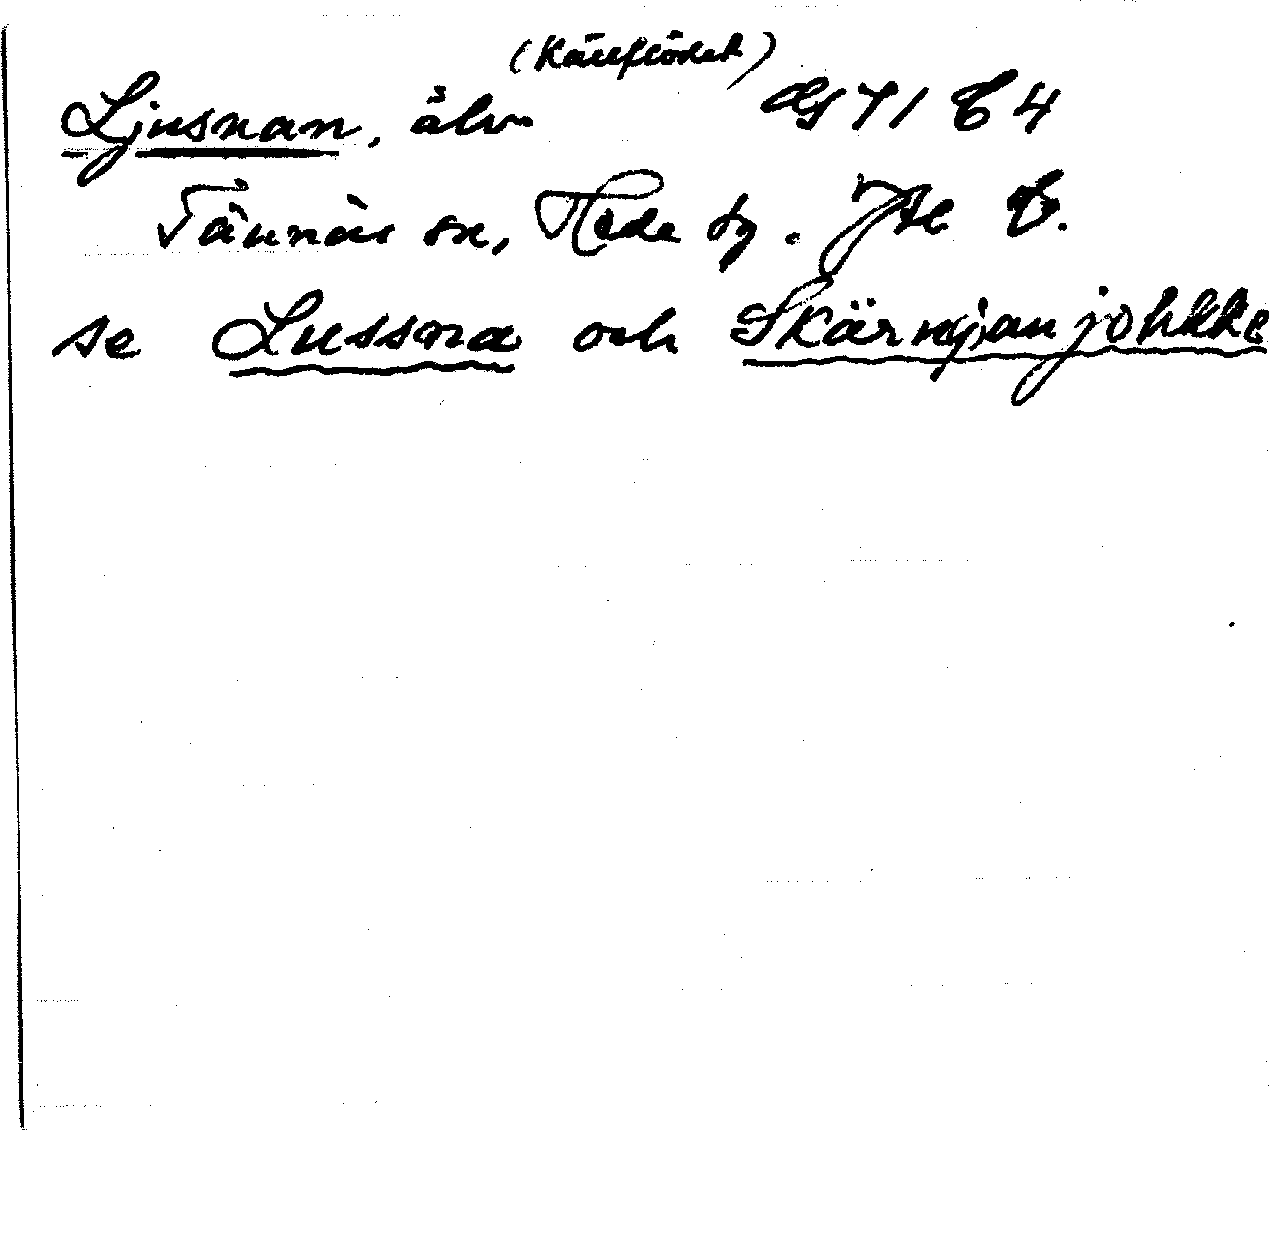 (Källflödet)
Ljusnan, älv 71 C 4
Tännäs sn, Hede tg. Jtl
se Lussna och Skärnjanjohkke